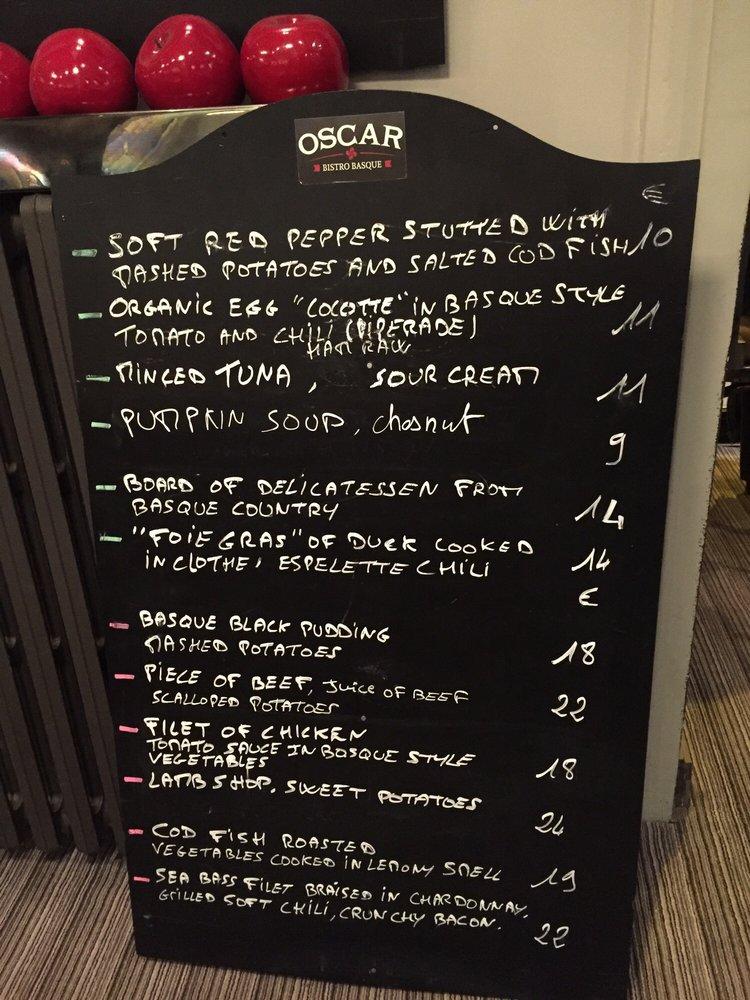 OSCAR
BISTRO BASQUE
€
SOFT RED PEPPER STUTTED WITH
MASHED POTATOES AND SALTED COD FISH 10
ORGANIC EGG "COCOTTE" IN BASQUE STYLE
TOMATO AND CHILI (PIPERADE) 11
HAM RAW
MINCED TUNA, SOUR CREAM 11
PUMPKIN SOUP, chasnut 9
BOARD OF DELICATESSEN FROM
BASQUE COUNTRY 14
"FOIE GRAS" OF DUCK COOKED
IN CLOTHE, ESPELETTE CHILI 14
€
BASQUE BLACK PUDDING
MASHED POTATOES 18
PIECE OF BEEF, JUICE OF BEEF
SCALLOPED POTATOES 22
FILET OF CHICKEN
TOMATO SAUCE IN BASQUE STYLE
VEGETABLES 18
LAMB SHOP. SWEET POTATOES 24
COD FISH ROASTED
VEGETABLES COOKED IN LEMONY SMELL 19
SEA BASS FILET BRAISED IN CHARDONNAY.
GRILLED SOFT CHILI, CRUNCHY BACON. 22